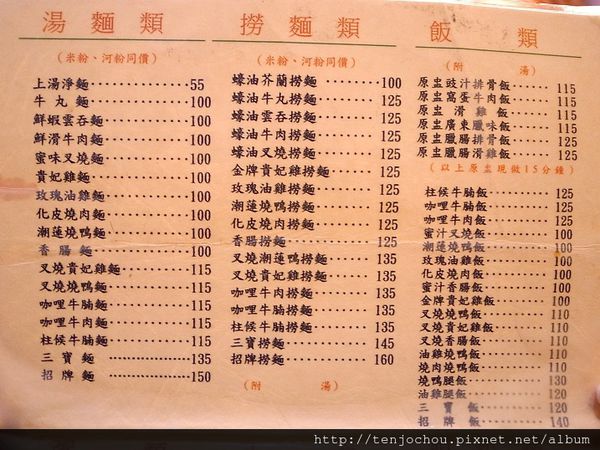 湯麵類
(米粉、河粉同價)
上湯淨麵 55
牛丸麵 100
鮮蝦雲吞麵 100
鮮滑牛肉麵 100
蜜味叉燒麵 100
貴妃雞麵 100
玫瑰油雞麵 100
化皮燒肉麵 100
潮蓮燒鴨麵 100
香腸麵 100
叉燒貴妃雞麵 115
叉燒燒鴨麵 115
咖哩牛腩麵 115
咖哩牛肉麵 115
柱候牛腩麵 115
三寶麵 135
招牌麵 150
撈麵類
(米粉、河粉同價)
蠔油芥蘭撈麵 100
蠔油牛丸撈麵 125
蠔油雲吞撈麵 125
蠔油牛肉撈麵 125
蠔油叉燒撈麵 125
金牌貴妃雞撈麵 125
玫瑰油雞撈麵 125
潮蓮燒鴨撈麵 125
化皮燒肉撈麵 125
香腸撈麵 125
叉燒潮蓮鴨撈麵 135
叉燒貴妃雞撈麵 135
咖哩牛肉撈麵 135
咖哩牛腩撈麵 135
柱候牛腩撈麵 135
三寶撈麵 145
招牌撈麵 160
(附湯)
飯類
(附湯)
原盅豉汁排骨飯 115
原盅窩蛋牛肉飯 115
原盅滑雞飯 115
原盅廣東臘味飯 115
原盅臘腸排骨飯 125
原盅臘腸滑雞飯 125
(以上原盅現做15分鐘)
柱候牛腩飯 125
咖哩牛腩飯 125
咖哩牛肉飯 125
蜜汁叉燒飯 100
潮蓮燒鴨飯 100
玫瑰油雞飯 100
化皮燒肉飯 100
蜜汁香腸飯 100
金牌貴妃雞飯 100
叉燒燒鴨飯 110
叉燒貴妃雞飯 110
叉燒香腸飯 110
油雞燒鴨飯 110
燒肉燒鴨飯 110
燒鴨腿飯 130
油雞腿飯 120
三寶飯 120
招牌飯 140
http://tenjochou.pixnet.net/album